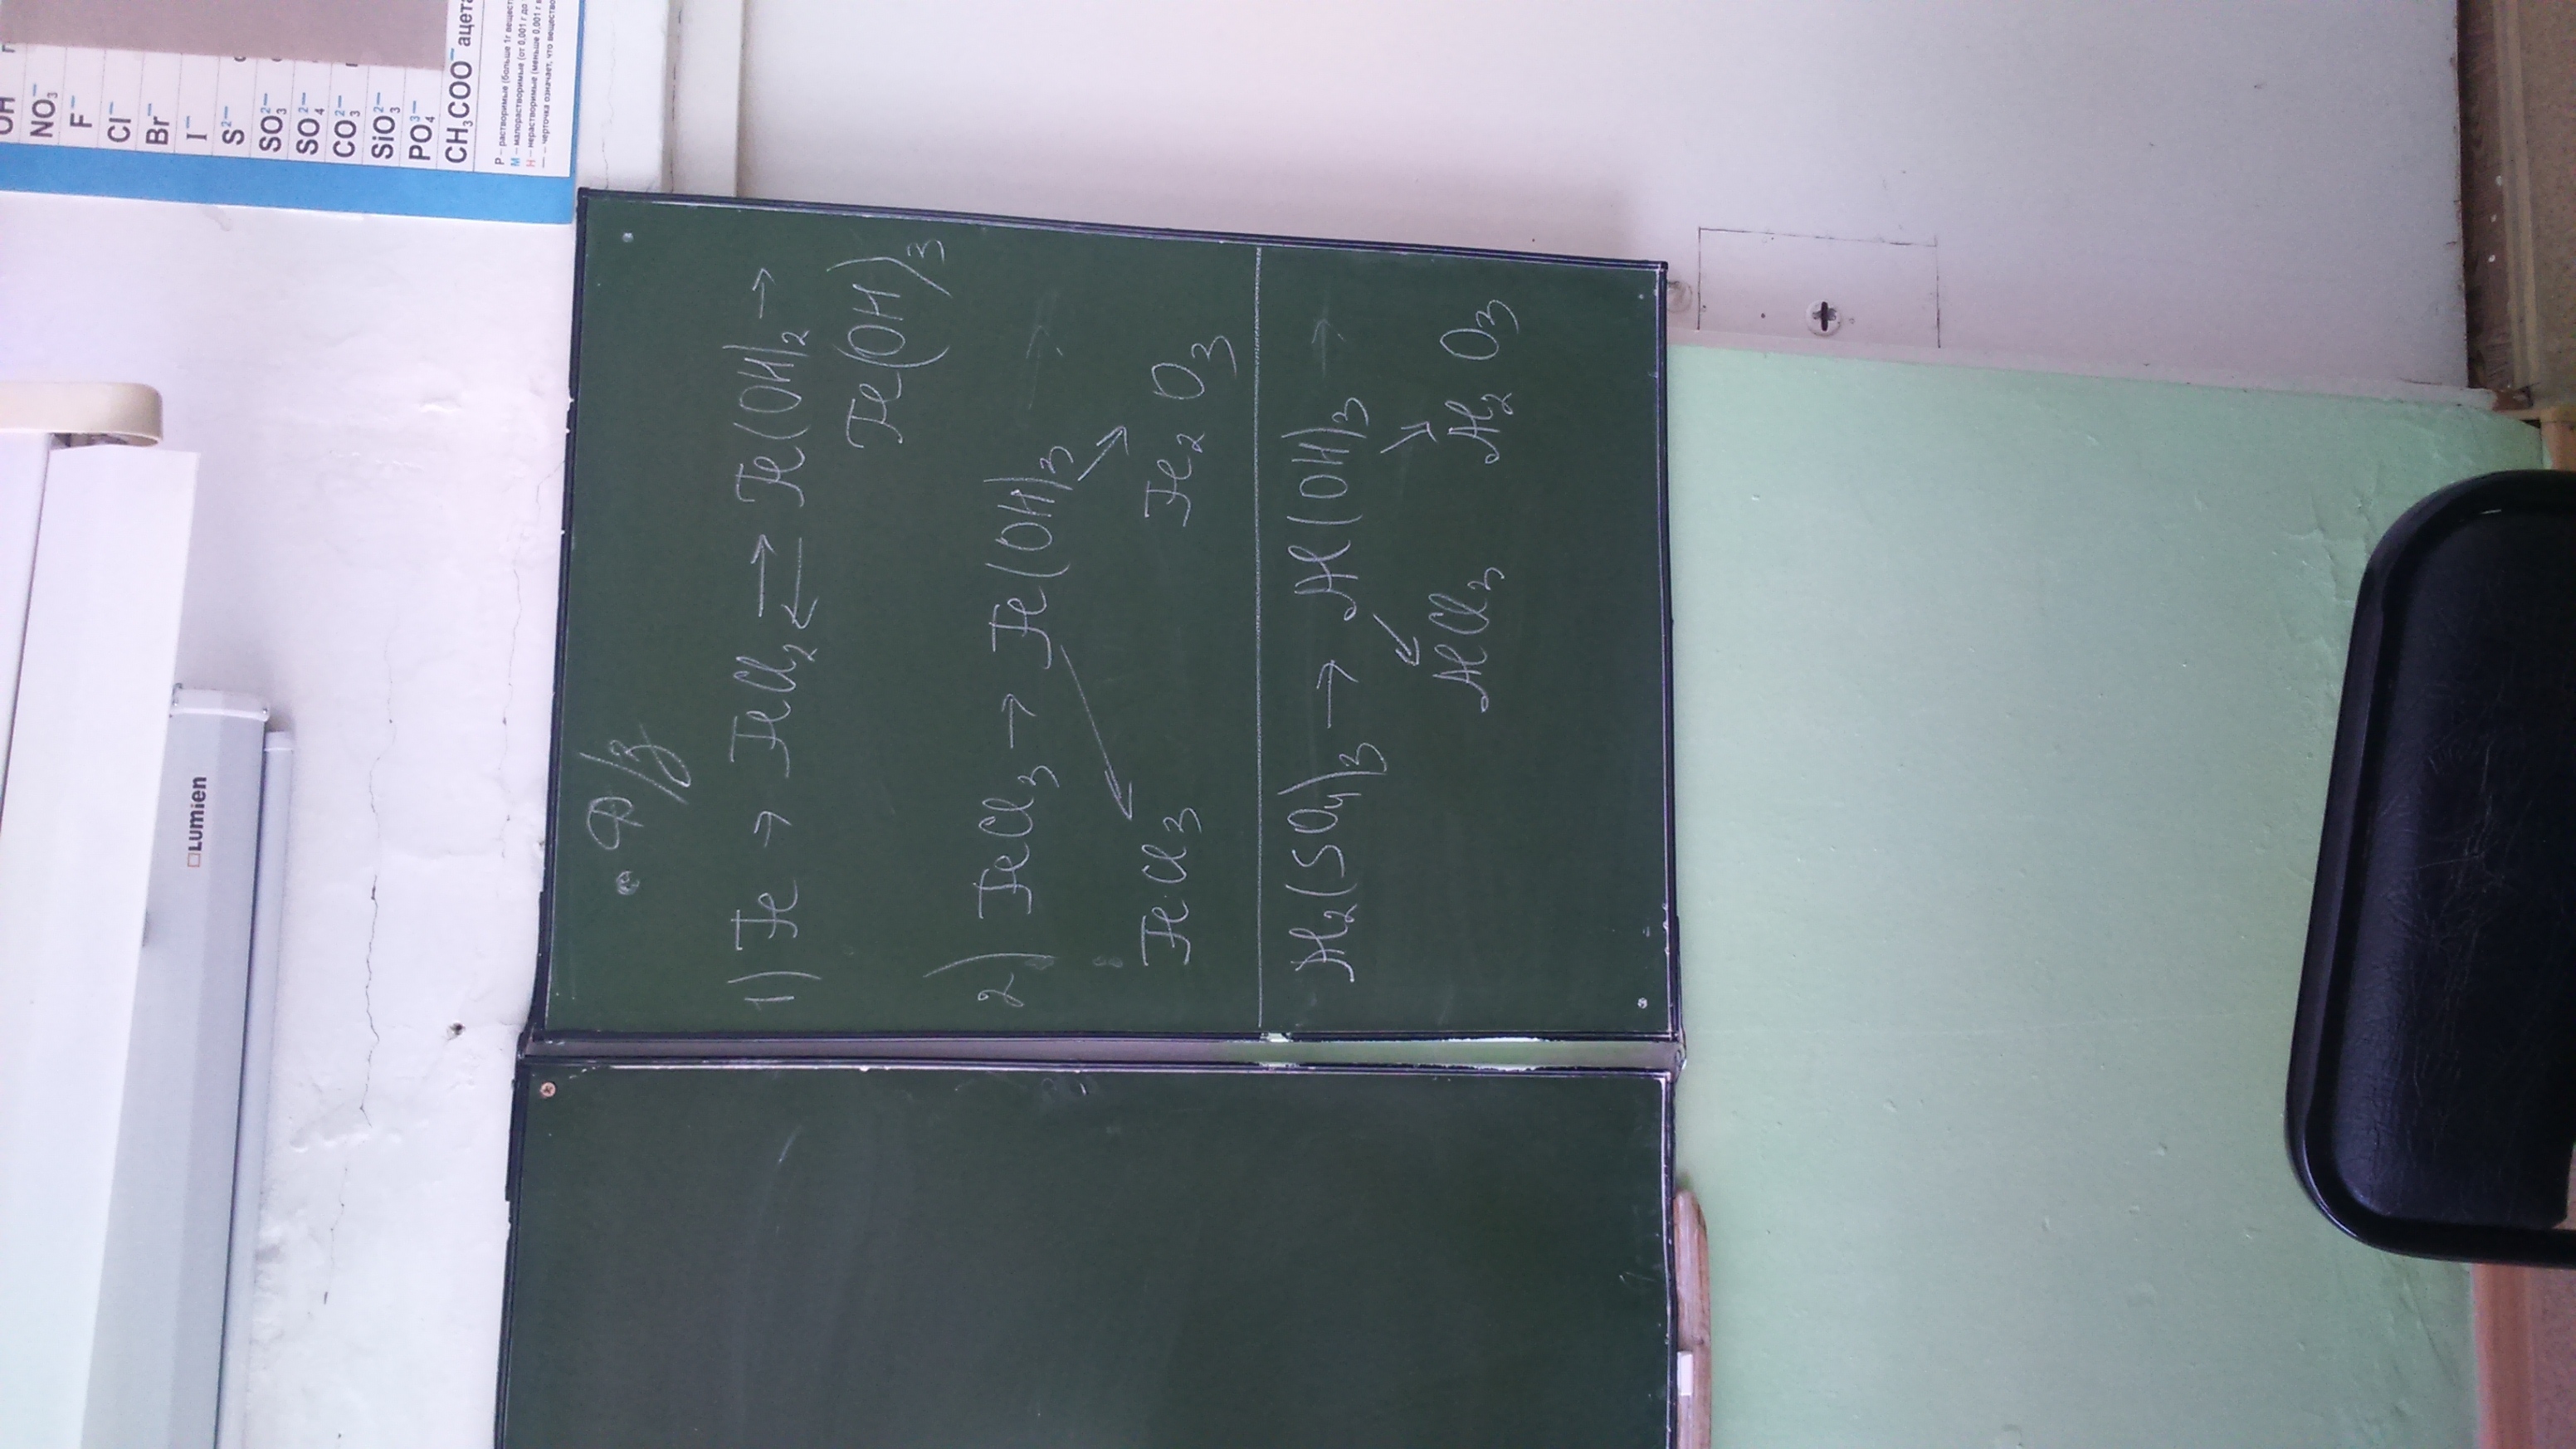 OH
NO₃⁻
F⁻
Cl⁻
Br⁻
I⁻
S²⁻
SO₃²⁻
SO₄²⁻
CO₃²⁻
SiO₃²⁻
PO₄³⁻
CH₃COO⁻ ацета
Р – растворимые (больше 1г вещест
М – малорастворимые (от 0,001 г до
Н – нерастворимые (меньше 0,001 г в
— – черточка означает, что вещество
Lumien
Д/з
1) Fe → FeCl₂ ⇄ Fe(OH)₂ →
Fe(OH)₃
2) FeCl₃ → Fe(OH)₃ →
↙ ↘
FeCl₃ Fe₂O₃
Al₂(SO₄)₃ → Al(OH)₃ →
↙ ↘
AlCl₃ Al₂O₃